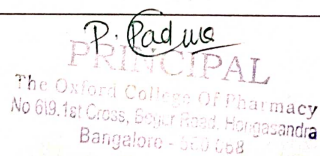 P. Padma
PRINCIPAL
The Oxford College Of Pharmacy
No 6/9.1st Cross, Begur Road, Hongasandra
Bangalore - 560 068